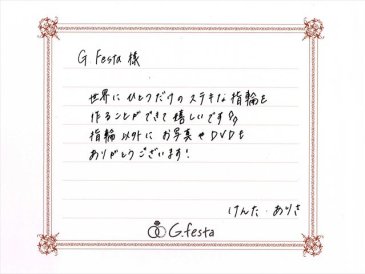 G.Festa 様
世界にひとつだけのステキな指輪を
作ることができて嬉しいです!!
指輪以外に お写真やDVDも
ありがとうございます!
けんた・ありさ
G.festa